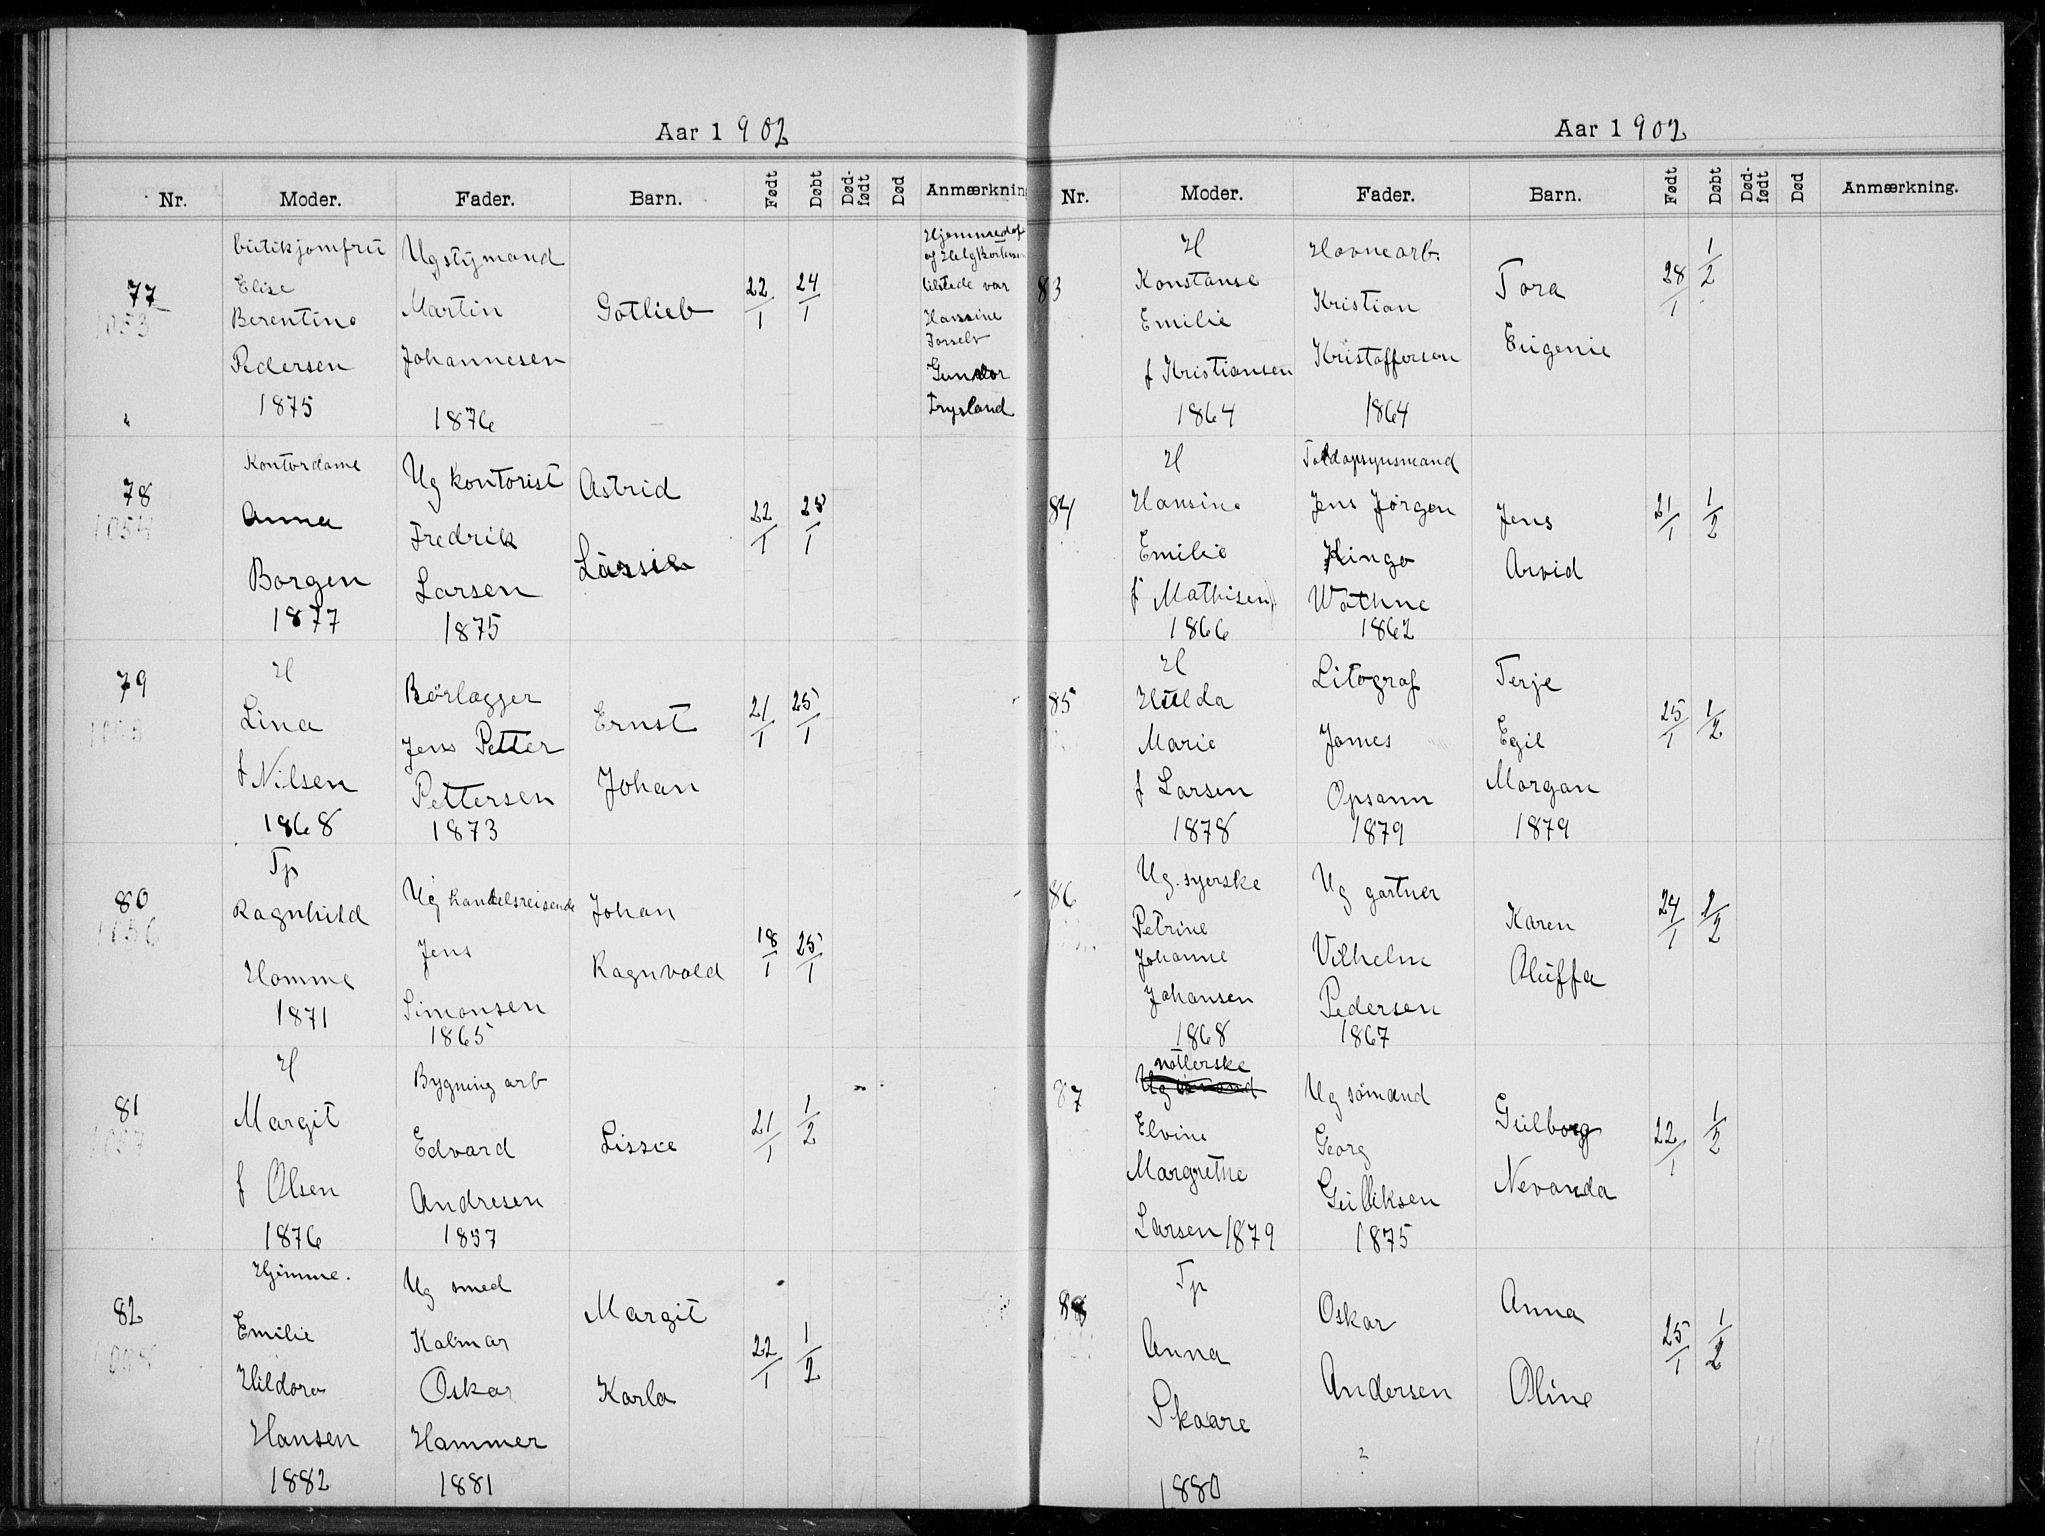 Aar 1902
Nr. Moder. Fader. Barn. Født Døbt Død-født Død Anmærkning
77
1053
butikjomfru
Elise
Berentine
Pedersen
1875
Ug styrmand
Martin
Johannesen
1876
Gotlieb
22/1 24/1
Hjemmedøpt
tilstede var
Hansine
Gundor
Trysland
78
1054
Kontordame
Anna
Borgen
1877
Ug kontorist
Fredrik
Larsen
1875
Astrid
Lassie
22/1 25/1
79
1055
H
Lina
f Nilsen
1868
Rørlægger
Jens Petter
Pettersen
1873
Ernst
Johan
21/1 25/1
80
1056
Tp
Ragnhild
Homme
1871
Ug handelsreisende
Jens
Simonsen
1865
Johan
Ragnvald
18/1 25/1
81
1057
H
Margit
f Olsen
1876
Bygning arb
Edvard
Andresen
1857
Lissie
21/1 1/2
82
1058
Hjemme.
Emilie
Hildora
Hansen
1882
Ug smed
Kalmar
Oskar
Hammer
1881
Margit
Karla
22/1 1/2
Aar 1902
Nr. Moder. Fader. Barn. Født Døbt Død-født Død Anmærkning.
83
H
Konstanse
Emilie
f Kristiansen
1864
Havnearb.
Kristian
Kristoffersen
1864
Tora
Eugenie
28/1 1/2
84
H
Hansine
Emilie
f Mathisen
1866
Toldopsynsmand
Jens Jørgen
Kingo
Wathne
1862
Jens
Arvid
21/1 1/2
85
H
Hulda
Marie
f Larsen
1878
Litograf
James
Opsann
1879
Terje
Egil
Morgan
1879
25/1 1/2
86
Ug. syerske
Petrine
Johanne
Johansen
1868
Ug gartner
Vilhelm
Pedersen
1867
Karen
Aluffa
24/1 2/2
87
nøtlerske
Elvine
Margrethe
Larsen 1879
Ug sømand
Georg
Gulliksen
1875
Gulborg
Nevanda
22/1 1/2
88
Tp
Anna
Skaare
1880
Oskar
Andersen
?
Anna
Oline
25/1 1/2